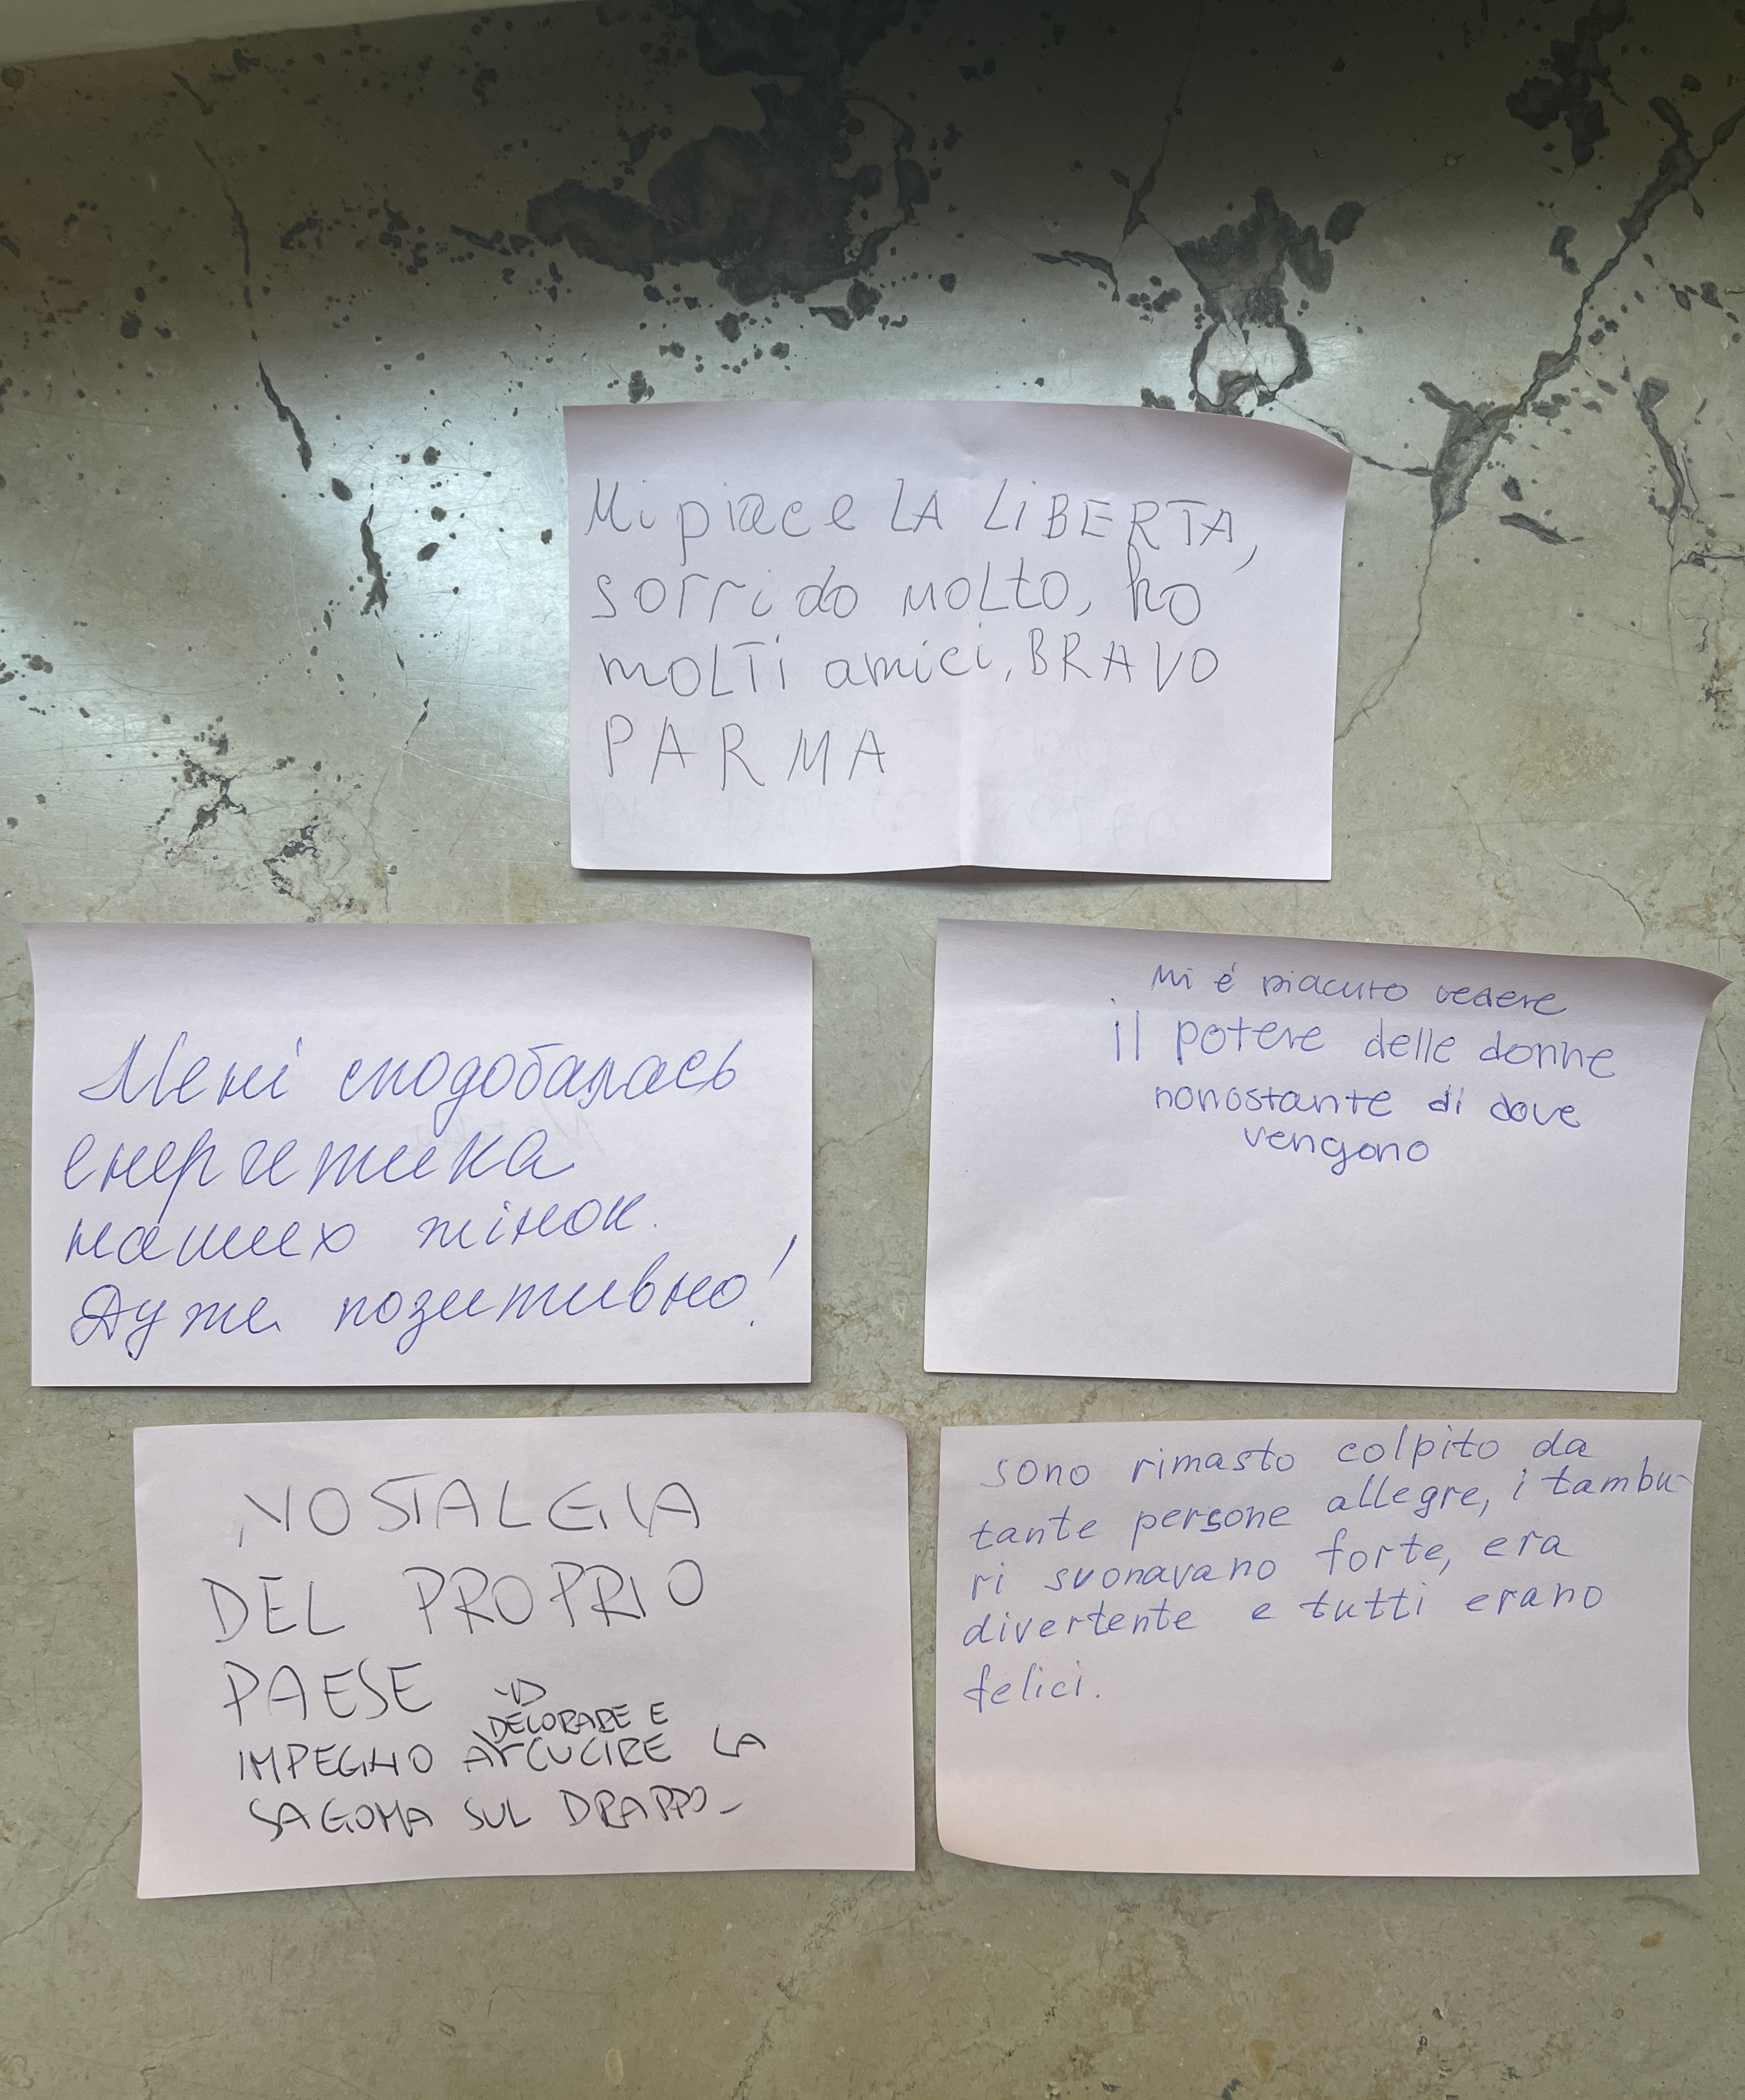 Mi piace LA LiBERTA,
sorrido MOLto, ho
mOLTi amici, BRAVO
PARMA
Мені сподобалась
енергетика
наших жінок.
Дуже позитивно!
Mi é piacuto vedere
il potere delle donne
nonostante di dove
vengono
NOSTALGIA
DEL PROPRIO
PAESE
DECORARE E
IMPEGNO A CUCIRE LA
SAGOMA SUL DRAPPO_
sono rimasto colpito da
tante persone allegre, i tambu-
ri suonavano forte, era
divertente e tutti erano
felici.